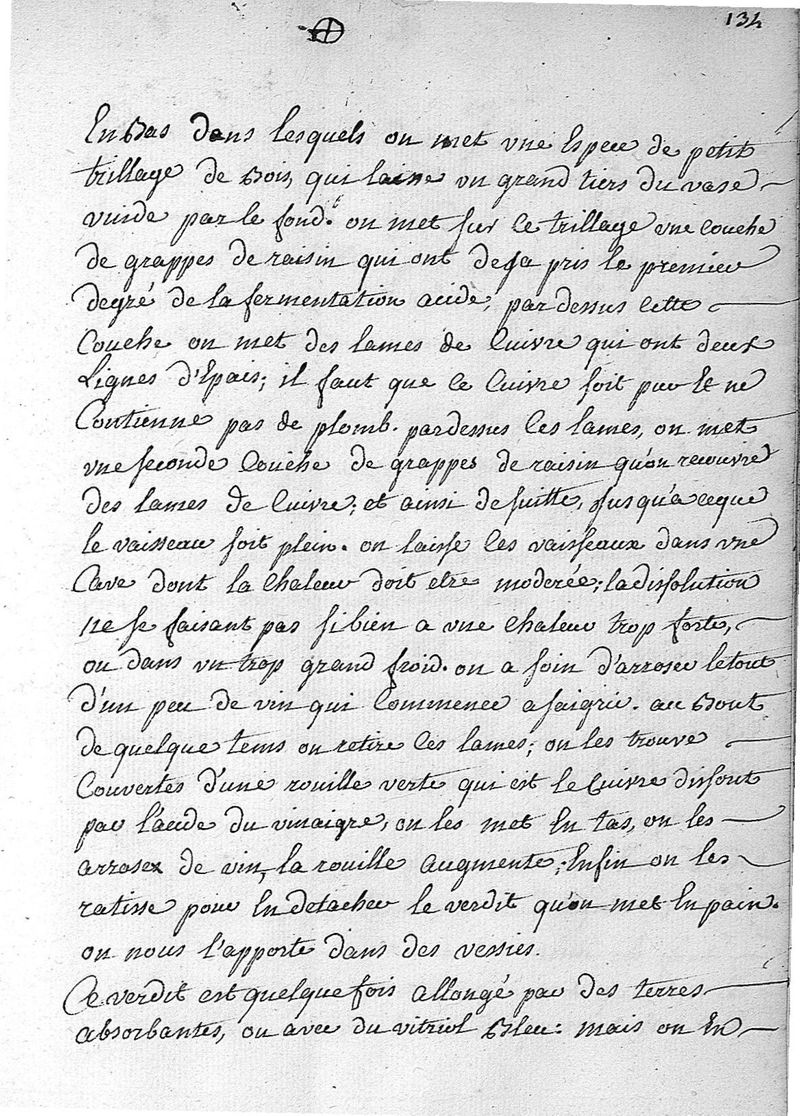 134
En Bas dans lesquels on met une Espece de petit
trillage de Bois, qui laisse un grand tiers du vase
vuide par le fond. on met sur ce trillage une couche
de grappes de raisin qui ont deja pris le premier
degré de la fermentation acide, par dessus cette
Couche on met des lames de Cuivre qui ont deux
Lignes d'Epais; il faut que ce Cuivre soit pur Et ne
Contienne pas de plomb. par dessus ces lames, on met
une seconde Couche de grappes de raisin qu'on recouvre
des lames de Cuivre; et ainsi de suitte, jusqu'a ceque
le vaisseau soit plein. on laisse ces vaisseaux dans une
Cave dont la Chaleur doit etre moderée; la dissolution
ne se faisant pas si bien a une Chaleur trop forte,
ou dans un trop grand froid. on a soin d'arroser le tout
d'un peu de vin qui Commence a s'aigrir. au Bout
de quelque tems on retire ces lames; on les trouve
Couvertes d'une rouille verte qui est le Cuivre dissout
par l'acide du vinaigre, on les met En tas, on les
arrose de vin, la rouille augmente; Enfin on les
ratisse pour En detacher le verdit qu'on met En pain.
on nous l'apporte dans des vessies.
Ce verdit est quelque fois allongé par des terres
absorbantes, ou avec du vitriol Bleu: mais on En